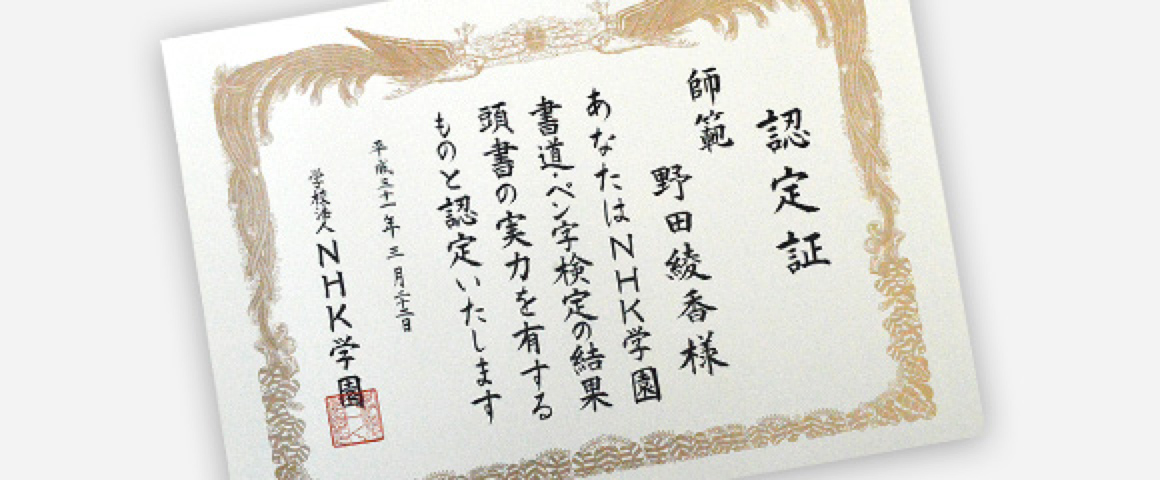 認定証
師範
野田綾香様
あなたはNHK学園
書道・ペン字検定の結果
頭書の実力を有する
ものと認定いたします
平成三十一年三月二十二日
学校法人NHK学園